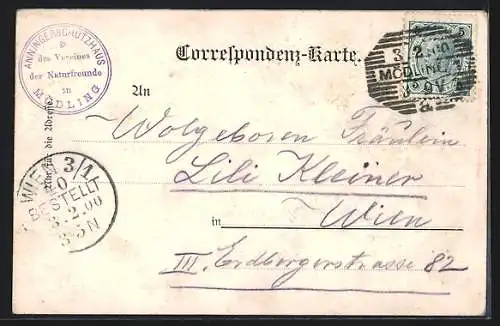 ANNINGERSCHUTZHAUS
des Vereines
der Naturfreunde
in
MÖDLING
Correspondenz-Karte.
5
3 2 00
MÖDLING
Nur für die Adresse.
An
Wolgeboren Fräulein
Lili Kleiner
in Wien
III. Erdbergerstrasse 82
WIEN 3/1
BESTELLT
3.2.00
3-5N